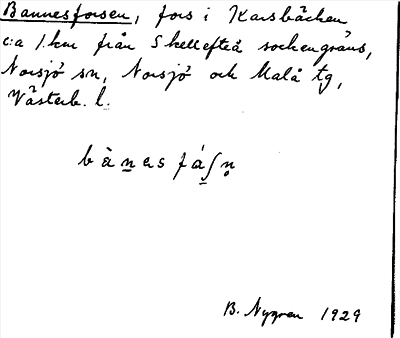 Bannesforsen, fors i Karsbäcken
c:a 1 km från Skellefteå sockengräns,
Norsjö sn, Norsjö och Malå tg,
Västerb. l.
B. Nygren 1929